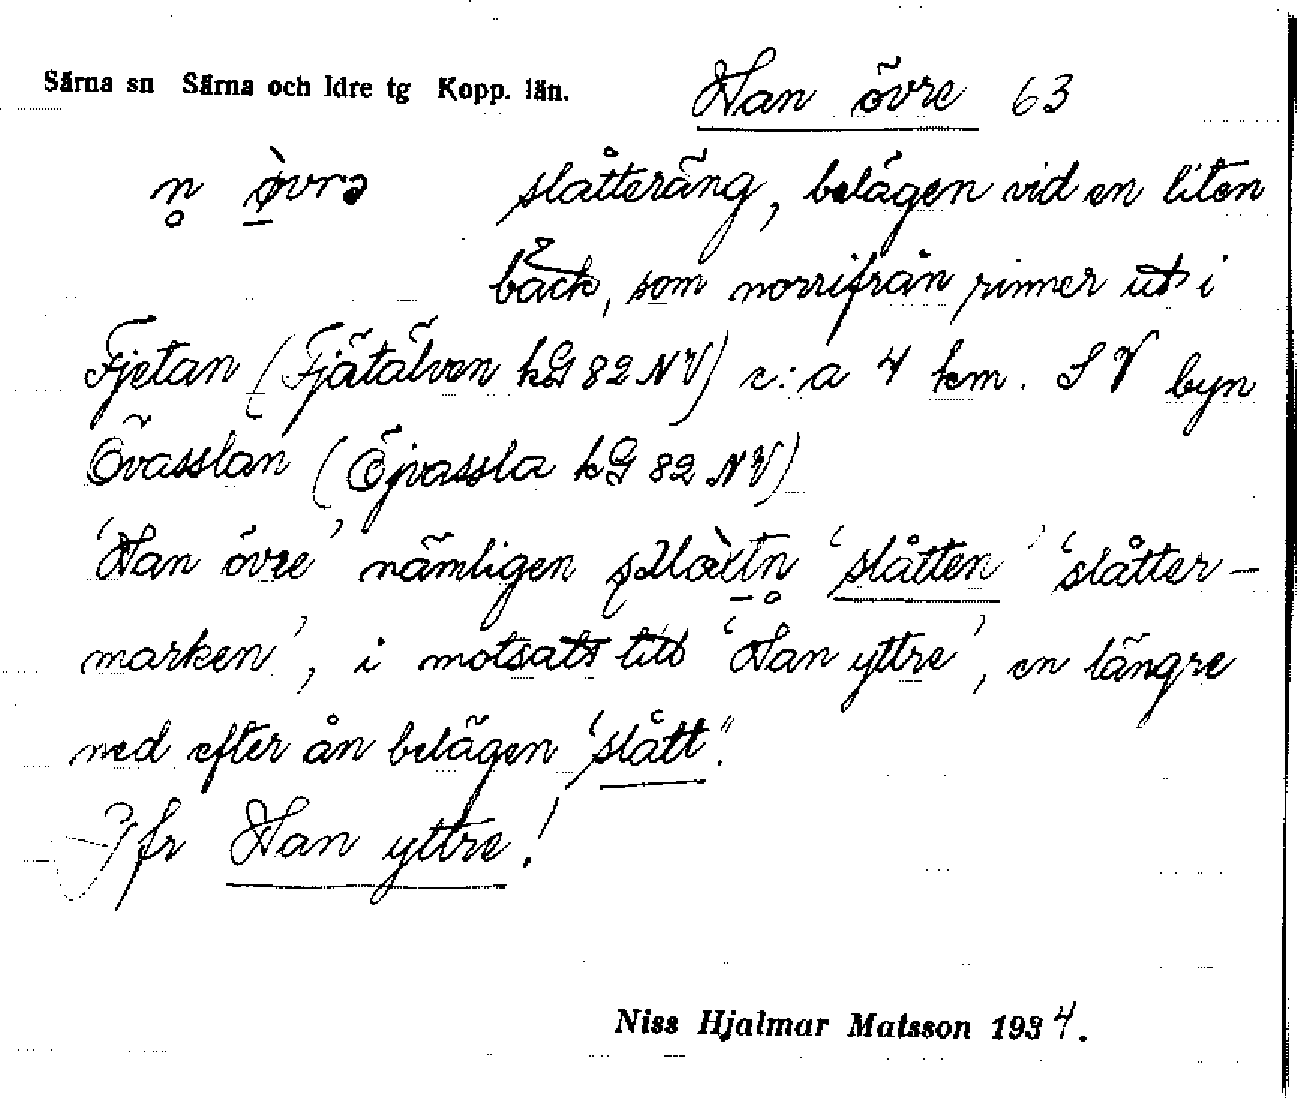 Särna sn Särna och Idre tg Kopp. län. Han övre 63
n̥ ø̀vrə slåtteräng, belägen vid en liten
bäck, som norrifrån rinner ut i
Fjetan (Fjätälven kG 82 NV) c:a 4 km. SV byn
Övasslan (Öjvassla kG 82 NV)
'Han övre' nämligen 'slåtten' 'slåtter-
marken', i motsats till 'Han yttre', en längre
ned efter ån belägen 'slått'.
Jfr Han yttre!
Niss Hjalmar Matsson 1934.